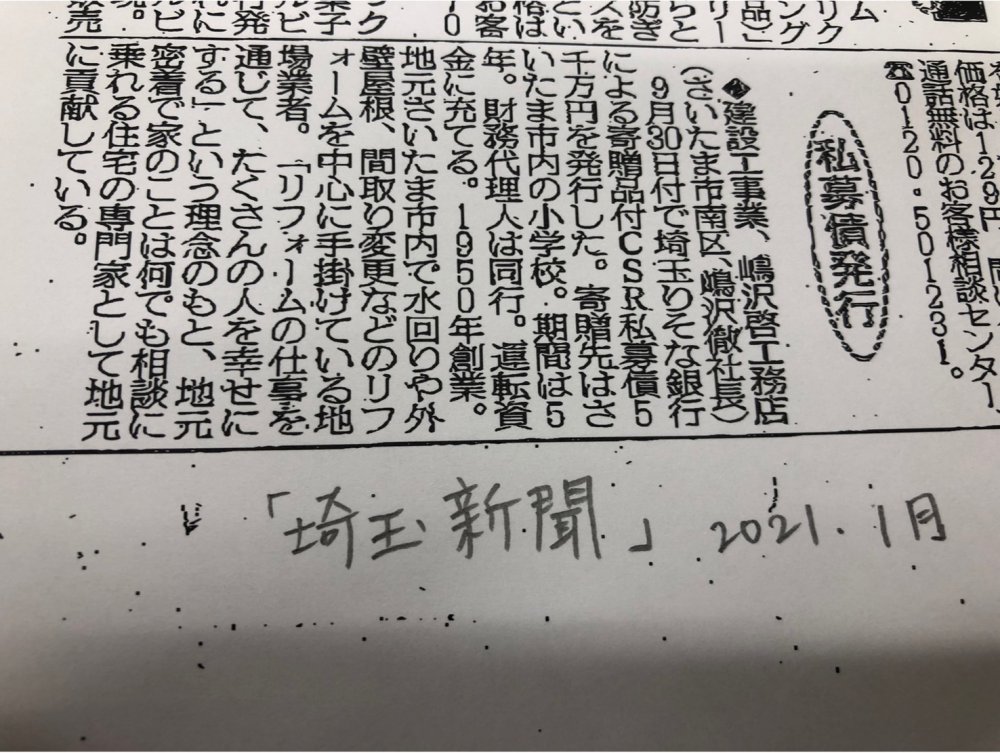 価格は129円。
通話無料のお客様相談センター
☎0120・501231。
私募債発行
◆建設工事業、嶋沢啓工務店
(さいたま市南区、嶋沢徹社長)
9月30日付で埼玉りそな銀行
による寄贈品付CSR私募債5
千万円を発行した。寄贈先はさ
いたま市内の小学校。期間は5
年。財務代理人は同行。運転資
金に充てる。1950年創業。
地元さいたま市内で水回りや外
壁屋根、間取り変更などのリフ
ォームを中心に手掛けている地
場業者。「リフォームの仕事を
通じて、たくさんの人を幸せに
する」という理念のもと、地元
密着で家のことは何でも相談に
乗れる住宅の専門家として地元
に貢献している。
「埼玉新聞」 2021.1月